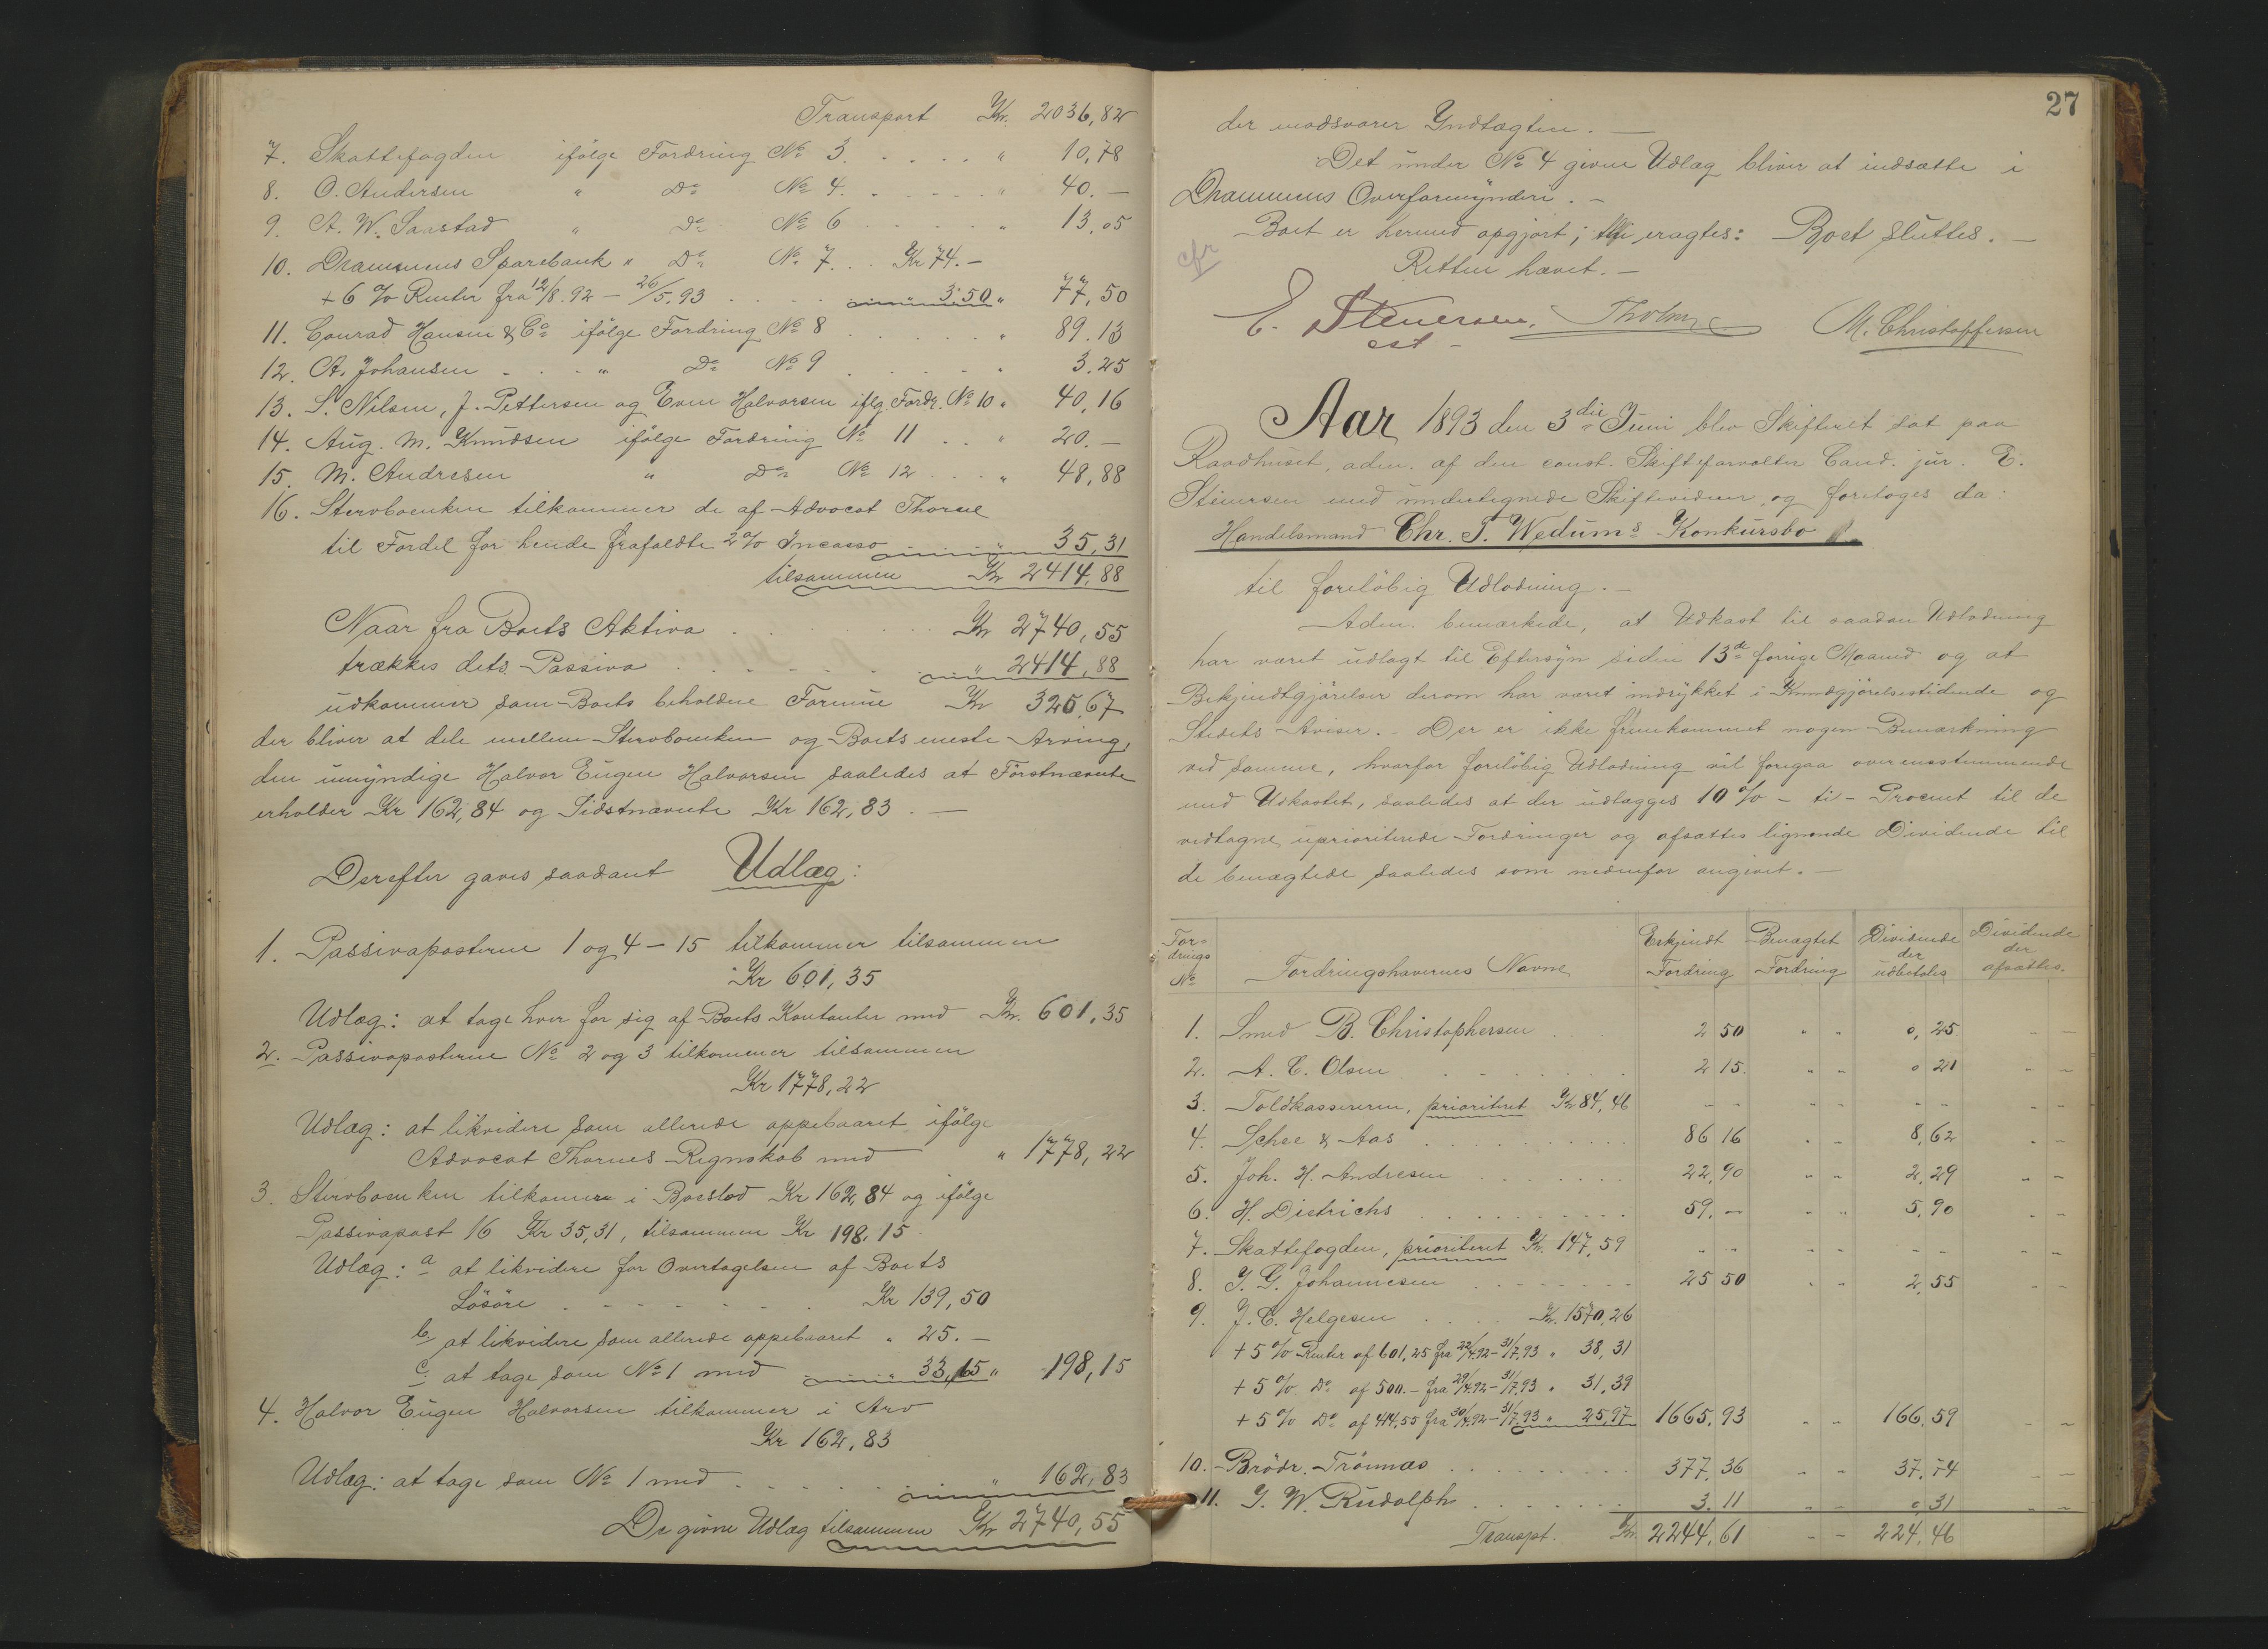 Transport Kr. 2036,82
7. Skattefogden ifölge Fordring No 3. . . . . " 10,78
8. O. Andersen " Do No 4. . . . . " 40.—
9. A. W. Saastad " Do No 6 . . . . " 13.05
10. Drammens Sparebank " Do No 7. . Kr 74.—
+ 6 % Renter fra 12/8.92 — 26/5.93 . . . . " 3.50 " 77,50
11. Conrad Hansen & Co ifölge Fordring No 8 . . . . . " 89.13
12. A. Johansen . . . " Do No 9 . . . . . " 3.25
13. S. Nilsen, J. Pettersen og Even Halvorsen iflg. Fordr. No 10 " 40,16
14. Aug. M. Knudsen ifölge Fordring No 11 . . " 20.—
15. M. Andresen " Do No 12 . . . " 48,88
16. Stervboenken tilkommer de af Advocat Thorne
til Fordel for hende frafaldte 2 % Incasso . . . " 35,31
tilsammen Kr 2414,88
Naar fra Boets Aktiva . . . . . . Kr 2740,55
trækkes dets Passiva . . . . . . " 2414,88
udkommer som Boets beholdne Formue Kr 325,67
der bliver at dele mellem Stervboenken og Boets eneste Arving,
den umyndige Halvor Eugen Halvorsen saaledes at Förstnævnte
erholder Kr 162,84 og Sidstnævnte Kr 162,83 . —
Derefter gaves saadant Udlæg:
1. Passivaposterne 1 og 4 — 15 tilkommer tilsammen
Kr 601,35
Udlæg: at tage hver for sig af Boets Kontanter med Kr. 601,35
2. Passivaposterne No 2 og 3 tilkommer tilsammen
Kr 1778,22
Udlæg: at likvidere som allerede oppebaaret ifölge
Advocat Thornes Regnskab med " 1778,22
3. Stervboenken tilkommer i Boeslod Kr 162,84 og ifölge
Passivapost 16 Kr 35,31, tilsammen Kr 198,15
Udlæg: a at likvidere for Overtagelsen af Boets
Lösöre . . . . . . . Kr 139,50
b at likvidere som allerede oppebaaret " 25.—
c. at tage som No 1 med . . . . " 33,65 " 198,15
4. Halvor Eugen Halvorsen tilkommer i Arv
Kr 162,83
Udlæg: at tage som No 1 med . . . . . . " 162,83
De givne Udlæg tilsammen Kr 2740,55
27
der modsvarer Indtægten. —
Det under No 4 givne Udlæg bliver at indsætte i
Drammens Overformynderi. —
Boet er hermed opgjort; thi eragtes: Boet sluttes. —
cfr
Retten hævet. —
E. Steuersen. Tholm M. Christoffersen
cst —
Aar 1893 den 3die Juni blev Skifteret sat paa
Raadhuset, adm. af den const. Skifteforvalter Cand. jur. E.
Steuersen med undertegnede Skiftevidner, og foretoges da:
Handelsmand Chr. T. Wedums Konkursbo
til foreløbig Udlodning. —
Adm. bemærkede, at Udkast til saadan Udlodning
har været udlagt til Eftersyn siden 13de forrige Maaned og at
Bekjendtgjörelser derom har været indrykket i Kundgjörelsestidende og
Stedets Aviser. — Der er ikke fremkommet nogen Bemærkning
ved samme, hvorfor foreløbig Udlodning vil foregaa overensstemmende
med Udkastet, saaledes at der udlægges 10 % — ti — Procent til de
vedtagne, uprioriterede Fordringer og afsættes lignende Dividende til
de benægtede saaledes som nedenfor angivet. —
For-drings No Fordringshavernes Navne Erkjendt Fordring Benægtet Fordring Dividende der udbetales Dividende der afsættes.
1. Smed B. Christophersen 2 50 " " 0,25 " "
2. A. C. Olsen . . . . . 2 15. " " 0 21 " "
3. Toldkassereren, prioriteret Kr 84,46 " " " " " " " "
4. Schee & Aas . . . . . 86 16 " " 8,62 " "
5. Joh. H. Andresen . . . . . 22,90 " " 2,29 " "
6. H. Dietrichs . . . . . 59.— " " 5,90 " "
7. Skattefogden, prioriteret Kr. 147,59 " " " " " " " "
8. J. G. Johannesen . . . . . 25 50 " " 2,55 " "
9. J. C. Helgesen . . . . Kr. 1570,26
+ 5 % Renter af 601,25 fra 22/4.92 — 31/7.93 " 38,31
+ 5 % Do af 500.— fra 29/4.92 — 31/7.93 " 31,39
+ 5 % Do af 414,55 fra 30/4.92 — 31/7.93 " 25,97 1665,93 " " 166,59 " "
10. Brödr. Trönnæs . . . . . 377,36 " " 37,74 " "
11. J. W. Rudolph . . . . . 3.11 " " 0,31 " "
Transpt. Kr. 2244,61 " " 224,46